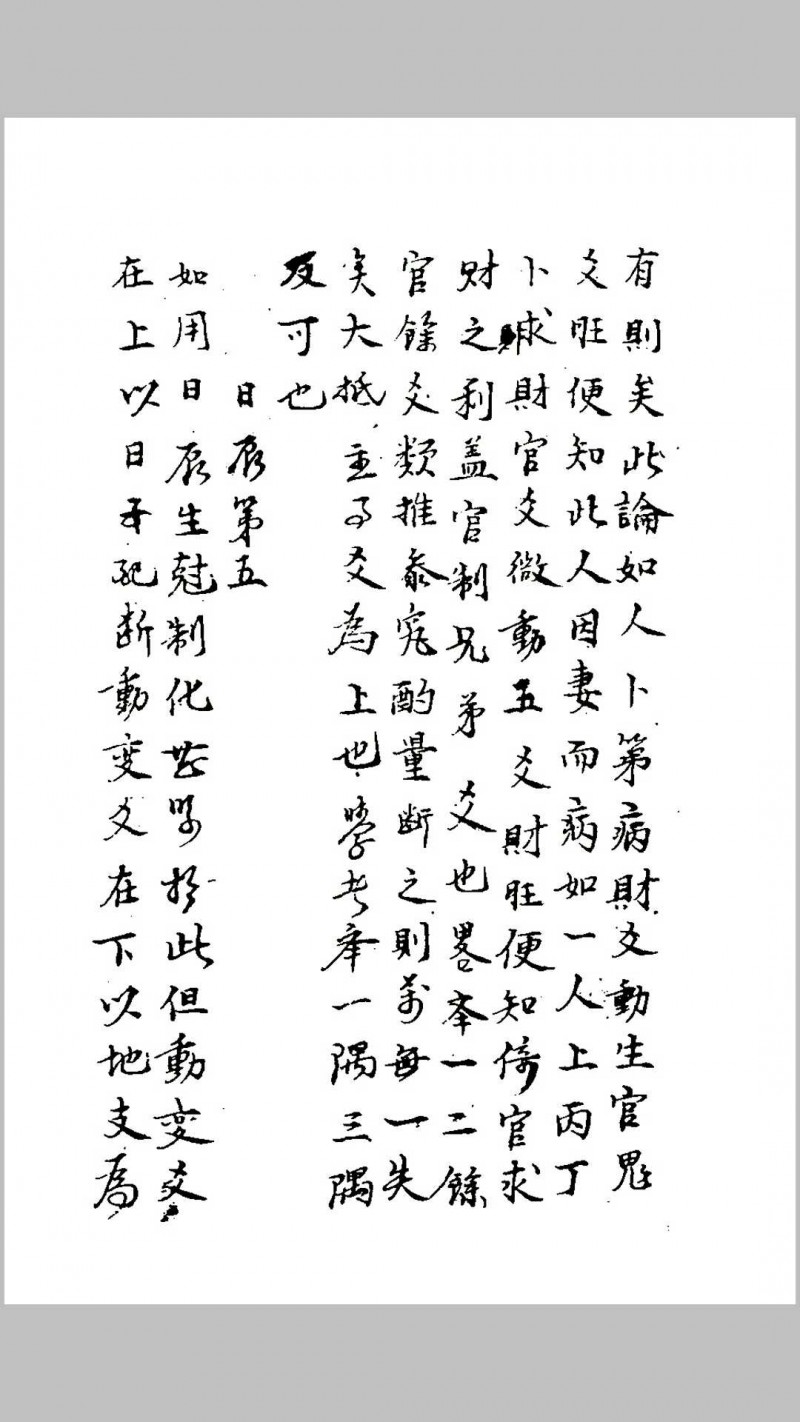 有則矣此論如人卜第病財爻動生官鬼
爻旺便知此人因妻而病如一人上丙丁
卜求財官爻微動五爻財旺便知倚官求
財之利盖官制兄弟爻也畧举一二餘
官餘爻類推參究酌量断之則萬毎一失
矣大抵主事爻為上也學者举一隅三隅
反可也
日辰第五
如用日辰生尅制化甚男於此但動变爻
在上以日干配断動变爻在下以地支為